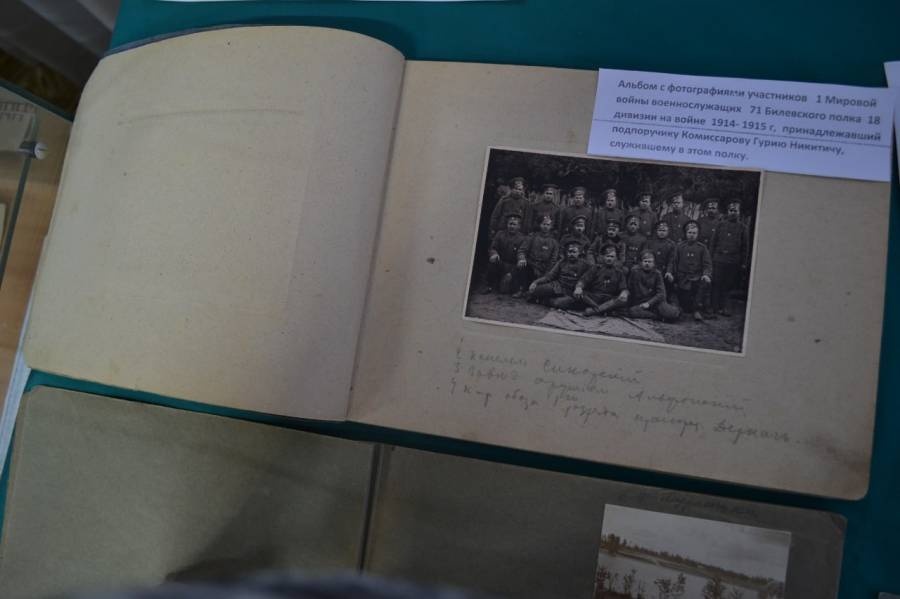 Альбом с фотографиями участников 1 Мировой
войны военнослужащих 71 Билевского полка 18
дивизии на войне 1914- 1915 г, принадлежавший
подпоручику Комиссарову Гурию Никитичу,
служившему в этом полку.
3 Завед оружием
4 к-р обоза разряда